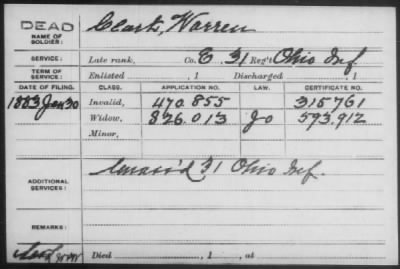 DEAD
NAME OF SOLDIER: Clark, Warren
SERVICE: Late rank, Co. E. 31 Reg't Ohio Inf.
TERM OF SERVICE: Enlisted , 1 Discharged , 1
DATE OF FILING. CLASS. APPLICATION NO. LAW. CERTIFICATE NO.
1883 Jan 30 Invalid, 470.855 315761
Widow, 826.013 593.912
Minor,
ADDITIONAL SERVICES: 31 Ohio Inf.
REMARKS:
Died , 1 , at